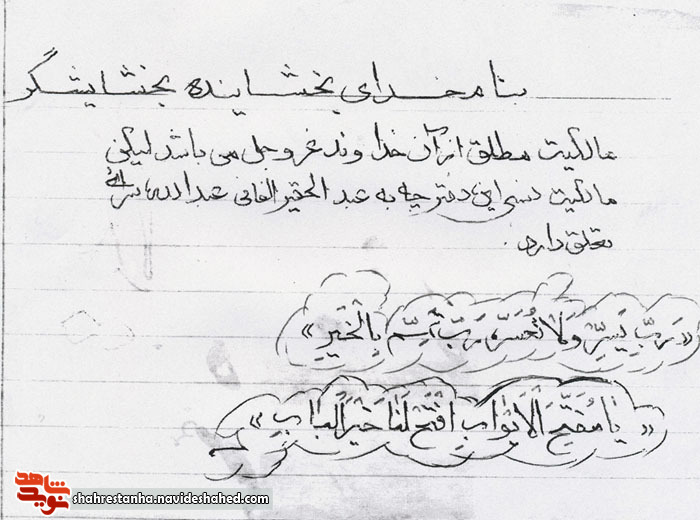 بنام خدای بخشاینده بخشایشگر
مالکیت مطلق از آن خداوند عزوجل می باشد لیکن
مالکیت نسبی این دفترچه به عبد الحقیر الفانی عبدالله
تعلق دارد.
«رَبِّ یَسِّر وَلا تُعَسِّر، رَبِّ تَمِّم بِالخَیرِ»
«یا مُفَتِّحَ الاَبوابِ اِفتَح لَنا خَیرَ البابِ»
شاهد
نوید
shahrestanha.navideshahed.com